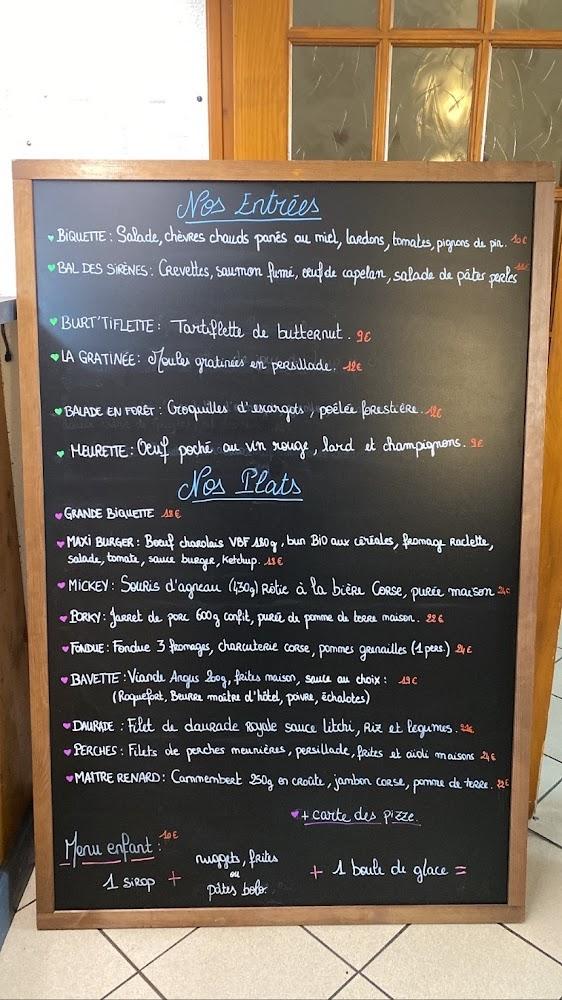 Nos Entrées
BIQUETTE : Salade, chèvres chauds panés au miel, lardons, tomates, pignons de pin. 10€
BAL DES SIRÈNES : Crevettes, saumon fumé, oeuf de capelan, salade de pâtes perles
BURT'TIFLETTE : Tartiflette de butternut. 9€
LA GRATINÉE : Moules gratinées en persillade. 12€
BALADE EN FORÊT : Croquilles d'escargots, poêlée forestière. 12€
MEURETTE : Oeuf poché au vin rouge, lard et champignons. 9€
Nos Plats
GRANDE BIQUETTE 18€
MAXI BURGER : Boeuf charolais VBF 180g, bun BIO aux céréales, fromage raclette,
salade, tomate, sauce burger, ketchup. 18€
MICKEY : Souris d'agneau (430g) Rôtie à la bière Corse, purée maison 24€
PORKY : Jarret de porc 600g confit, purée de pomme de terre maison. 22€
FONDUE : Fondue 3 fromages, charcuterie corse, pommes grenailles (1 pers.) 24€
BAVETTE : Viande Angus 200g, frites maison, sauce au choix : 19€
(Roquefort, Beurre maître d'hôtel, poivre, échalotes)
DAURADE : Filet de daurade Royale sauce litchi, Riz et légumes.
PERCHES : Filets de perches meunières, persillade, frites et aïoli maisons 24€
MAITRE RENARD : Cammembert 250g en croûte, jambon corse, pomme de terre. 22€
+ carte des pizze
Menu enfant : 10€
1 SIROP + nuggets, frites ou pâtes bolo. + 1 boule de glace =